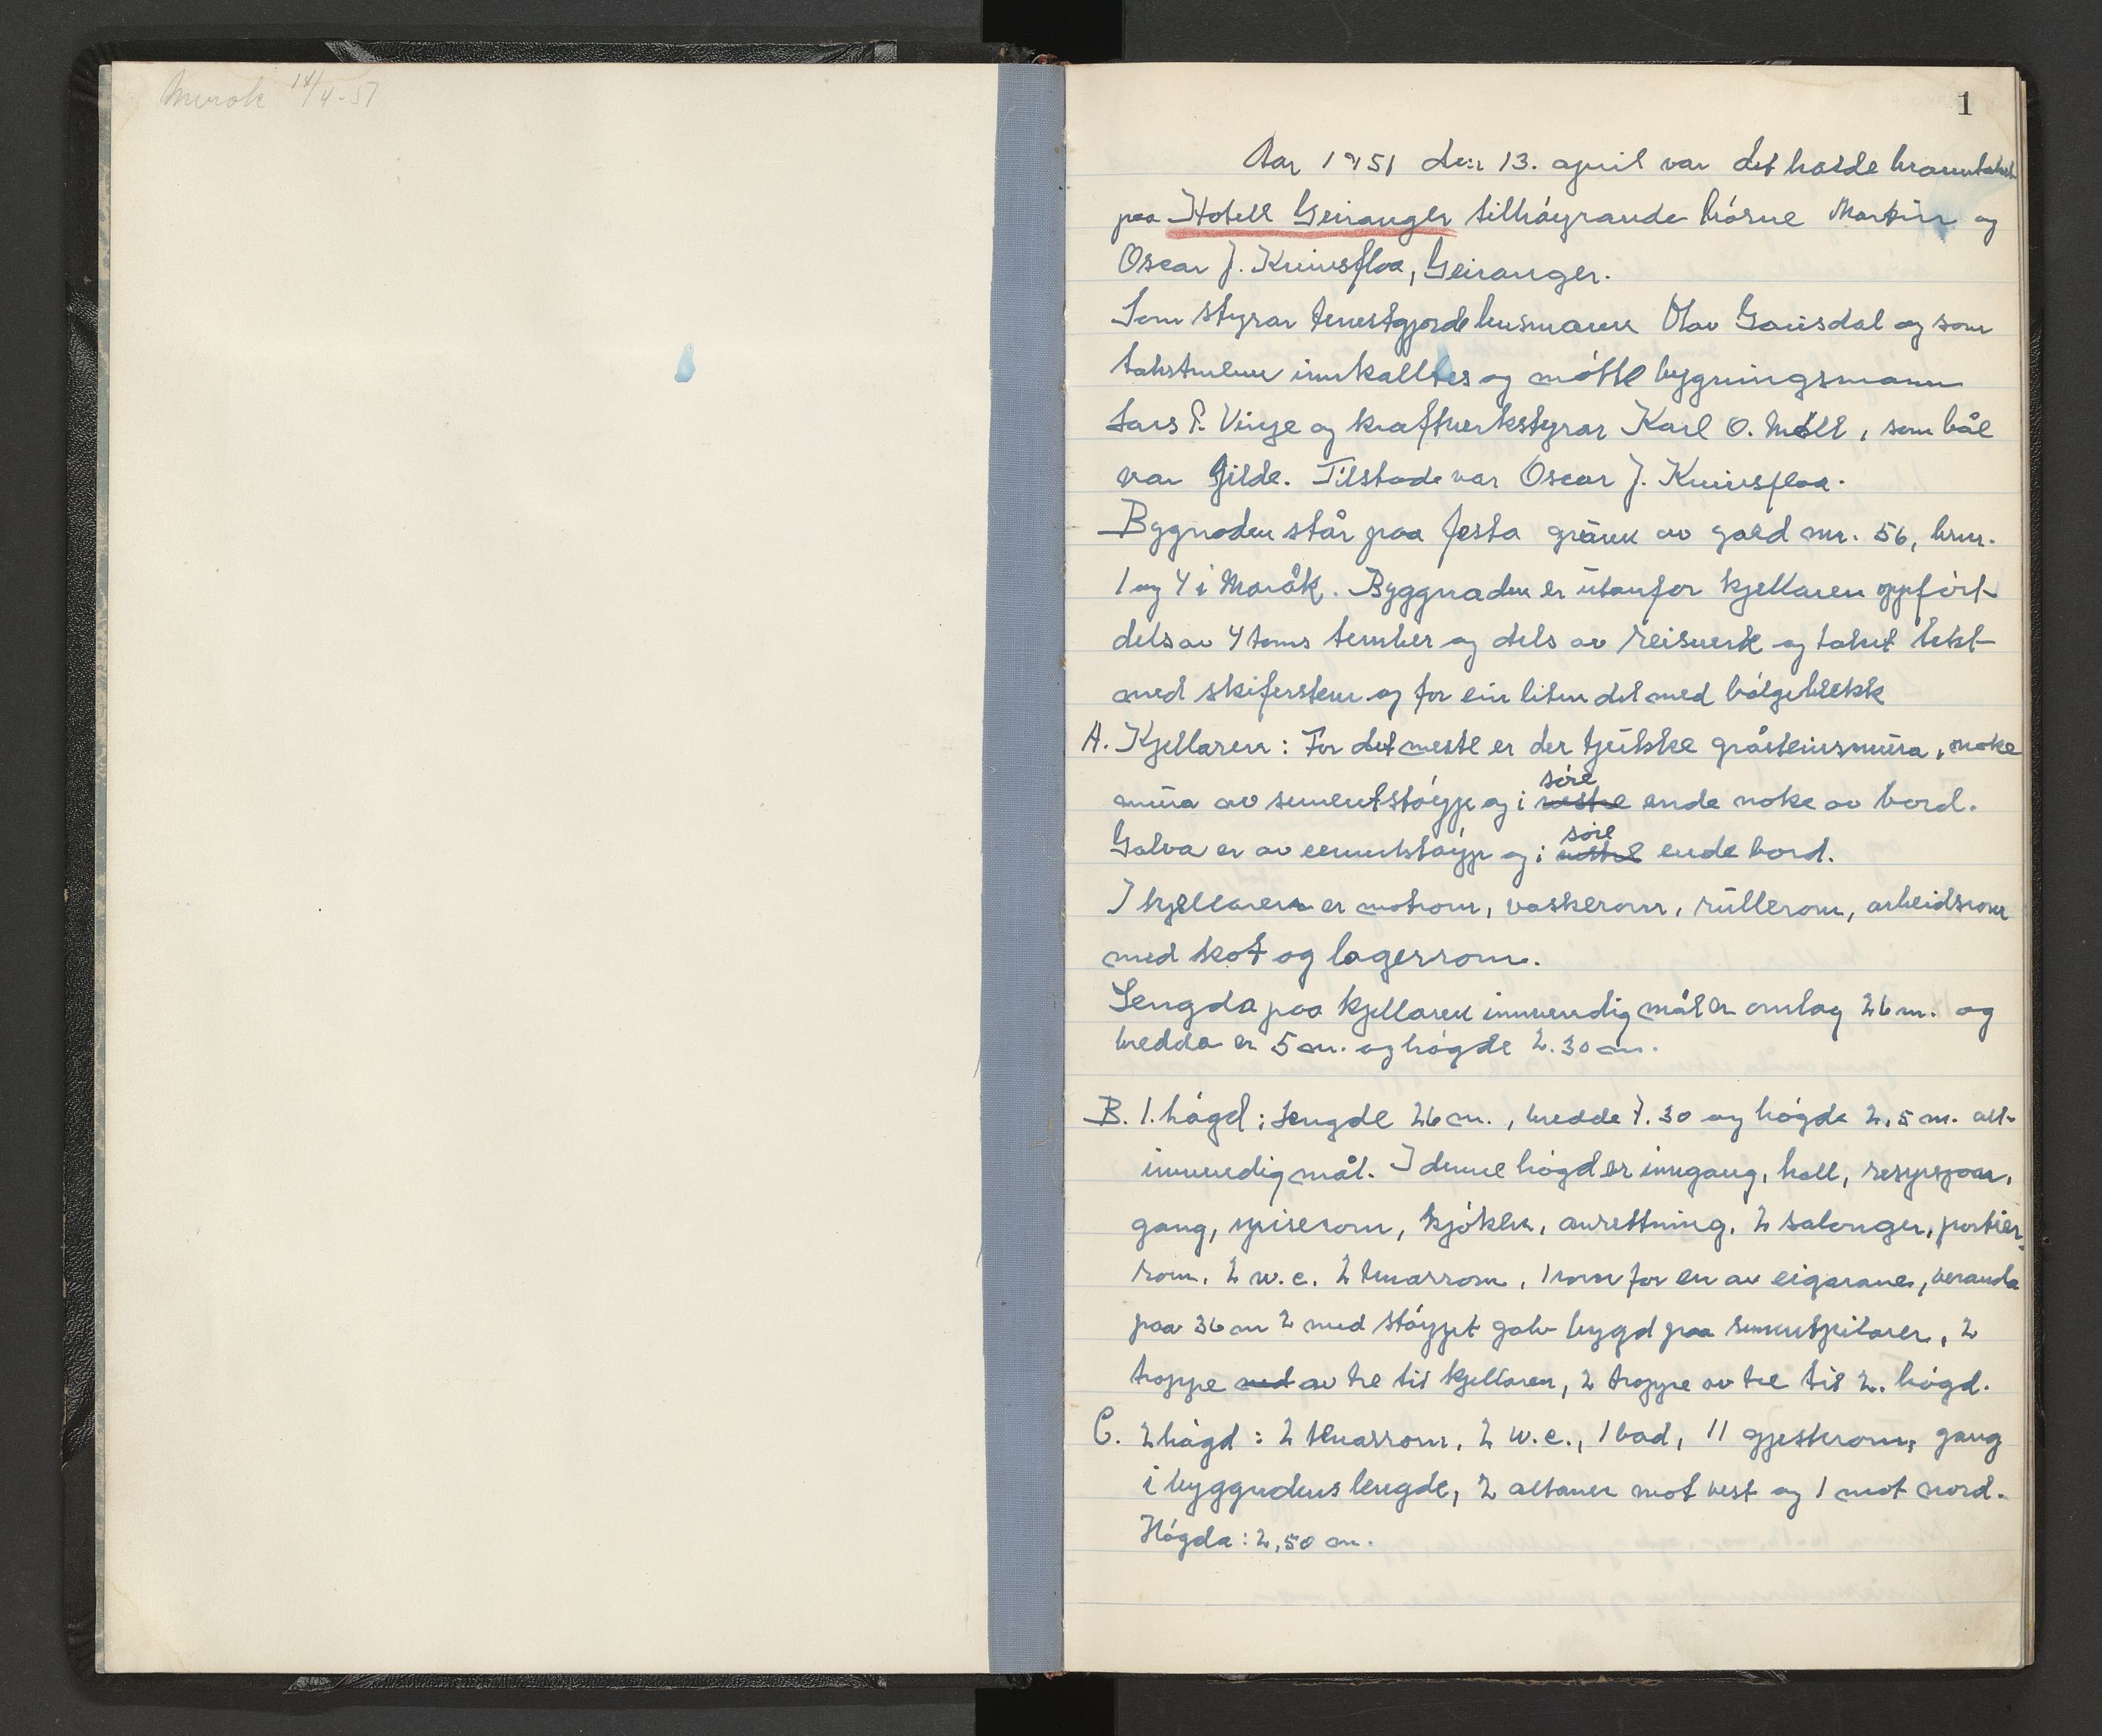 Merok 14/4-51
1
Aar 1951 den 13. april var det halde branntakst
paa Hotell Geiranger tilhøyrande brórne Martin og
Oscar J. Knivsflaa, Geiranger.
Som styrar tenestgjorde lensmann Olav Gausdal og som
takstmenn innkalltes og møtte bygningsmann
Lars P. Vinje og kraftverkstyrar Karl O. Møll, som båe
var gilde. Tilstade var Oscar J. Knivsflaa.
Bygnaden står paa festa grunn av gard nr. 56, brnr.
1 og 4 i Maråk. Byggnaden er utanfor kjellaren oppfört
dels av 4 toms tember og dels av reisverk og taket tekt
med skiferstein og for ein liten del med bølgeblekk
A. Kjellaren: For det meste er der tjukke gråsteinsmura, noke
mura av sementstøyp og i vestre søre ende noke av bord.
Golva er av cementstøyp og i vestre søre ende bord.
I kjellaren er matrom, vaskerom, rullerom, arbeidsrom
med kot og lagerrom.
Lengda paa kjellaren innvendig mål er omlag 26 m. og
bredda er 5 m. og høgde 2.30 m.
B. 1. høgd: Lengde 26 m., bredde 7.30 og høgde 2,5 m. alt
innvendig mål. I denne høgd er inngang, hall, resepsjon,
gang, spiserom, kjøken, anrettning, 2 salonger, portier-
rom, 2 w.c. 2 tenarrom, 1 rom for en av eigarane, veranda
paa 36 m 2 med støypt golv bygd paa sementpilarer, 2
troppe ned av tre til kjellaren, 2 troppe av tre til 2. høgd.
C. 2 høgd: 2 tenarrom, 2 w.c., 1 bad, 11 gjesterom, gang
i byggnadens lengde, 2 altaner mot vest og 1 mot nord.
Høgda: 2,50 m.